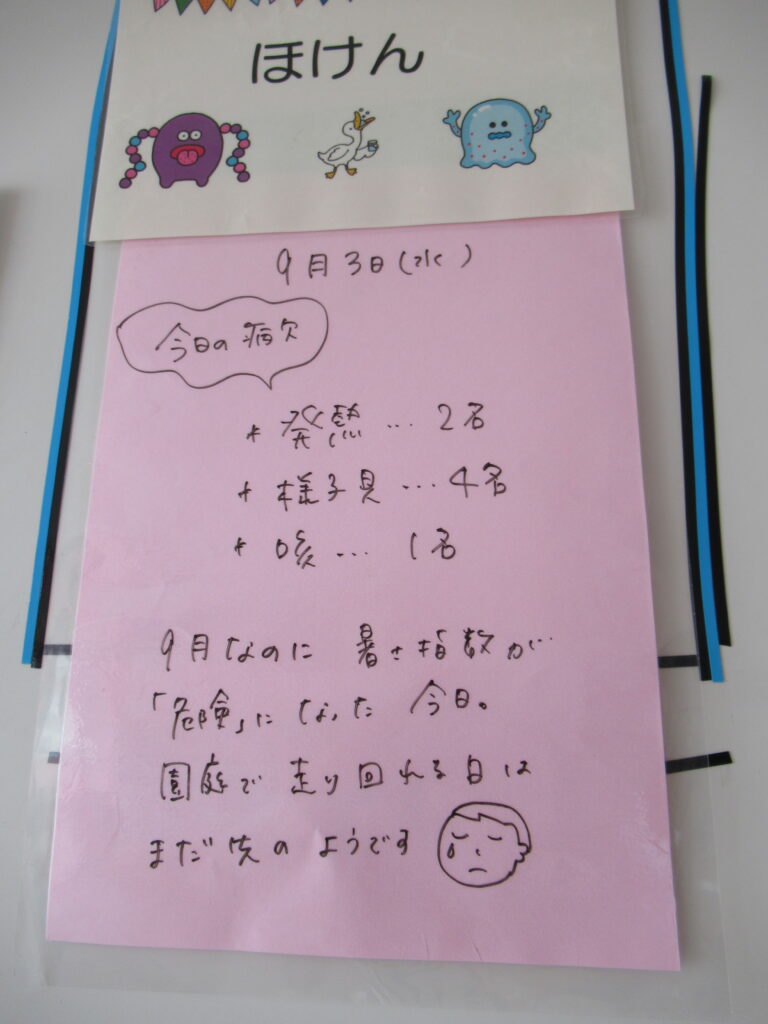 ほけん
9月3日(水)
今日の病欠
* 発熱…2名
* 様子見…4名
* 咳…1名
9月なのに 暑さ指数が
「危険」になった 今日。
園庭で 走り回れる日は
まだ先の ようです